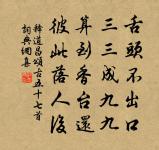 舌頭不出口
三三成九九
算到香台還
彼此落人後
釋道昌頌古五十七首
詞典網集